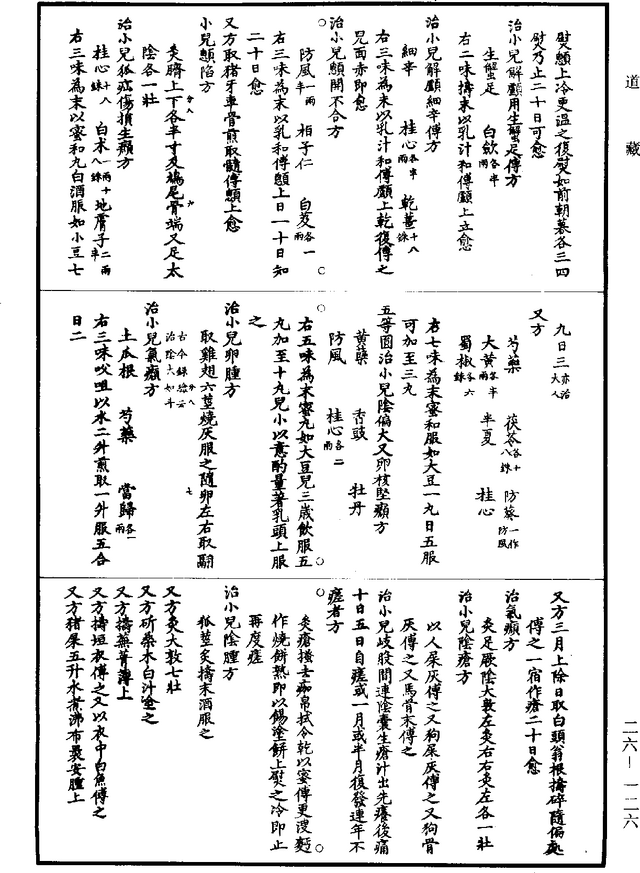 道藏
熨顖上冷更溫之復熨如前朝暮各三四
熨乃止二十日可愈
治小兒解顱用生蟹足傅方
生蟹足 白歛各半兩
右二味擣末以乳汁和傅顱上立愈
治小兒解顱細辛傅方
細辛 桂心各半兩 乾薑十八銖
右三味為末以乳汁和傅顱上乾復傅之
兒面赤即愈
治小兒顖開不合方
防風一兩半 栢子仁 白芨各一兩
右三味為末以乳和傅顖上日一十日知
二十日愈
又方取猪牙車骨煎取髓傅顖上愈
小兒顖陷方
灸臍上下各半寸及鳩尾骨端又足太
陰各一壯
治小兒狐疝傷損生㿗方
桂心十八銖 白术一兩十八銖 地膚子二兩半
右三味為末以蜜和丸白酒服如小豆七
九日三亦治大人
又方
芍藥 茯苓各十八銖 防葵一作防風
大黃各半兩 半夏 桂心
蜀椒各六銖
右七味為末蜜和服如大豆一九日五服
可加至三九
五等圓治小兒陰偏大又卵核堅㿗方
黃蘗 香豉 牡丹
防風 桂心各二兩
右五味為末蜜丸如大豆兒三歲飲服五
丸加至十九兒小以意酌量著乳頭上服
之
治小兒卵腫方
取雞翅六莖燒灰服之隨卵左右取翮
古今錄驗云治陰大如斗
治小兒氣㿗方
土瓜根 芍藥 當歸各一兩
右三味㕮咀以水二升煎取一升服五合
日二
又方三月上除日取白頭翁根擣碎隨偏處
傅之一宿作瘡二十日愈
治氣㿗方
灸足厥陰大敦左灸右右灸左各一壯
治小兒陰瘡方
以人屎灰傅之又狗屎灰傅之又狗骨
灰傅之又馬骨末傅之
治小兒歧股間連陰囊生瘡汁出先癢後痛
十日五日自瘥或一月或半月復發連年不
瘥者方
灸瘡搔去痂帛拭令乾以蜜傅更溲麪
作燒餅熟即以餳塗餅上熨之冷即止
再度瘥
治小兒陰腫方
狐莖炙擣末酒服之
又方灸大敦七壯
又方斫桑木白汁塗之
又方擣蕪菁薄上
又方擣垣衣傅之又以衣中白魚傅之
又方猪屎五升水煮沸布裹安腫上
二六—一二六